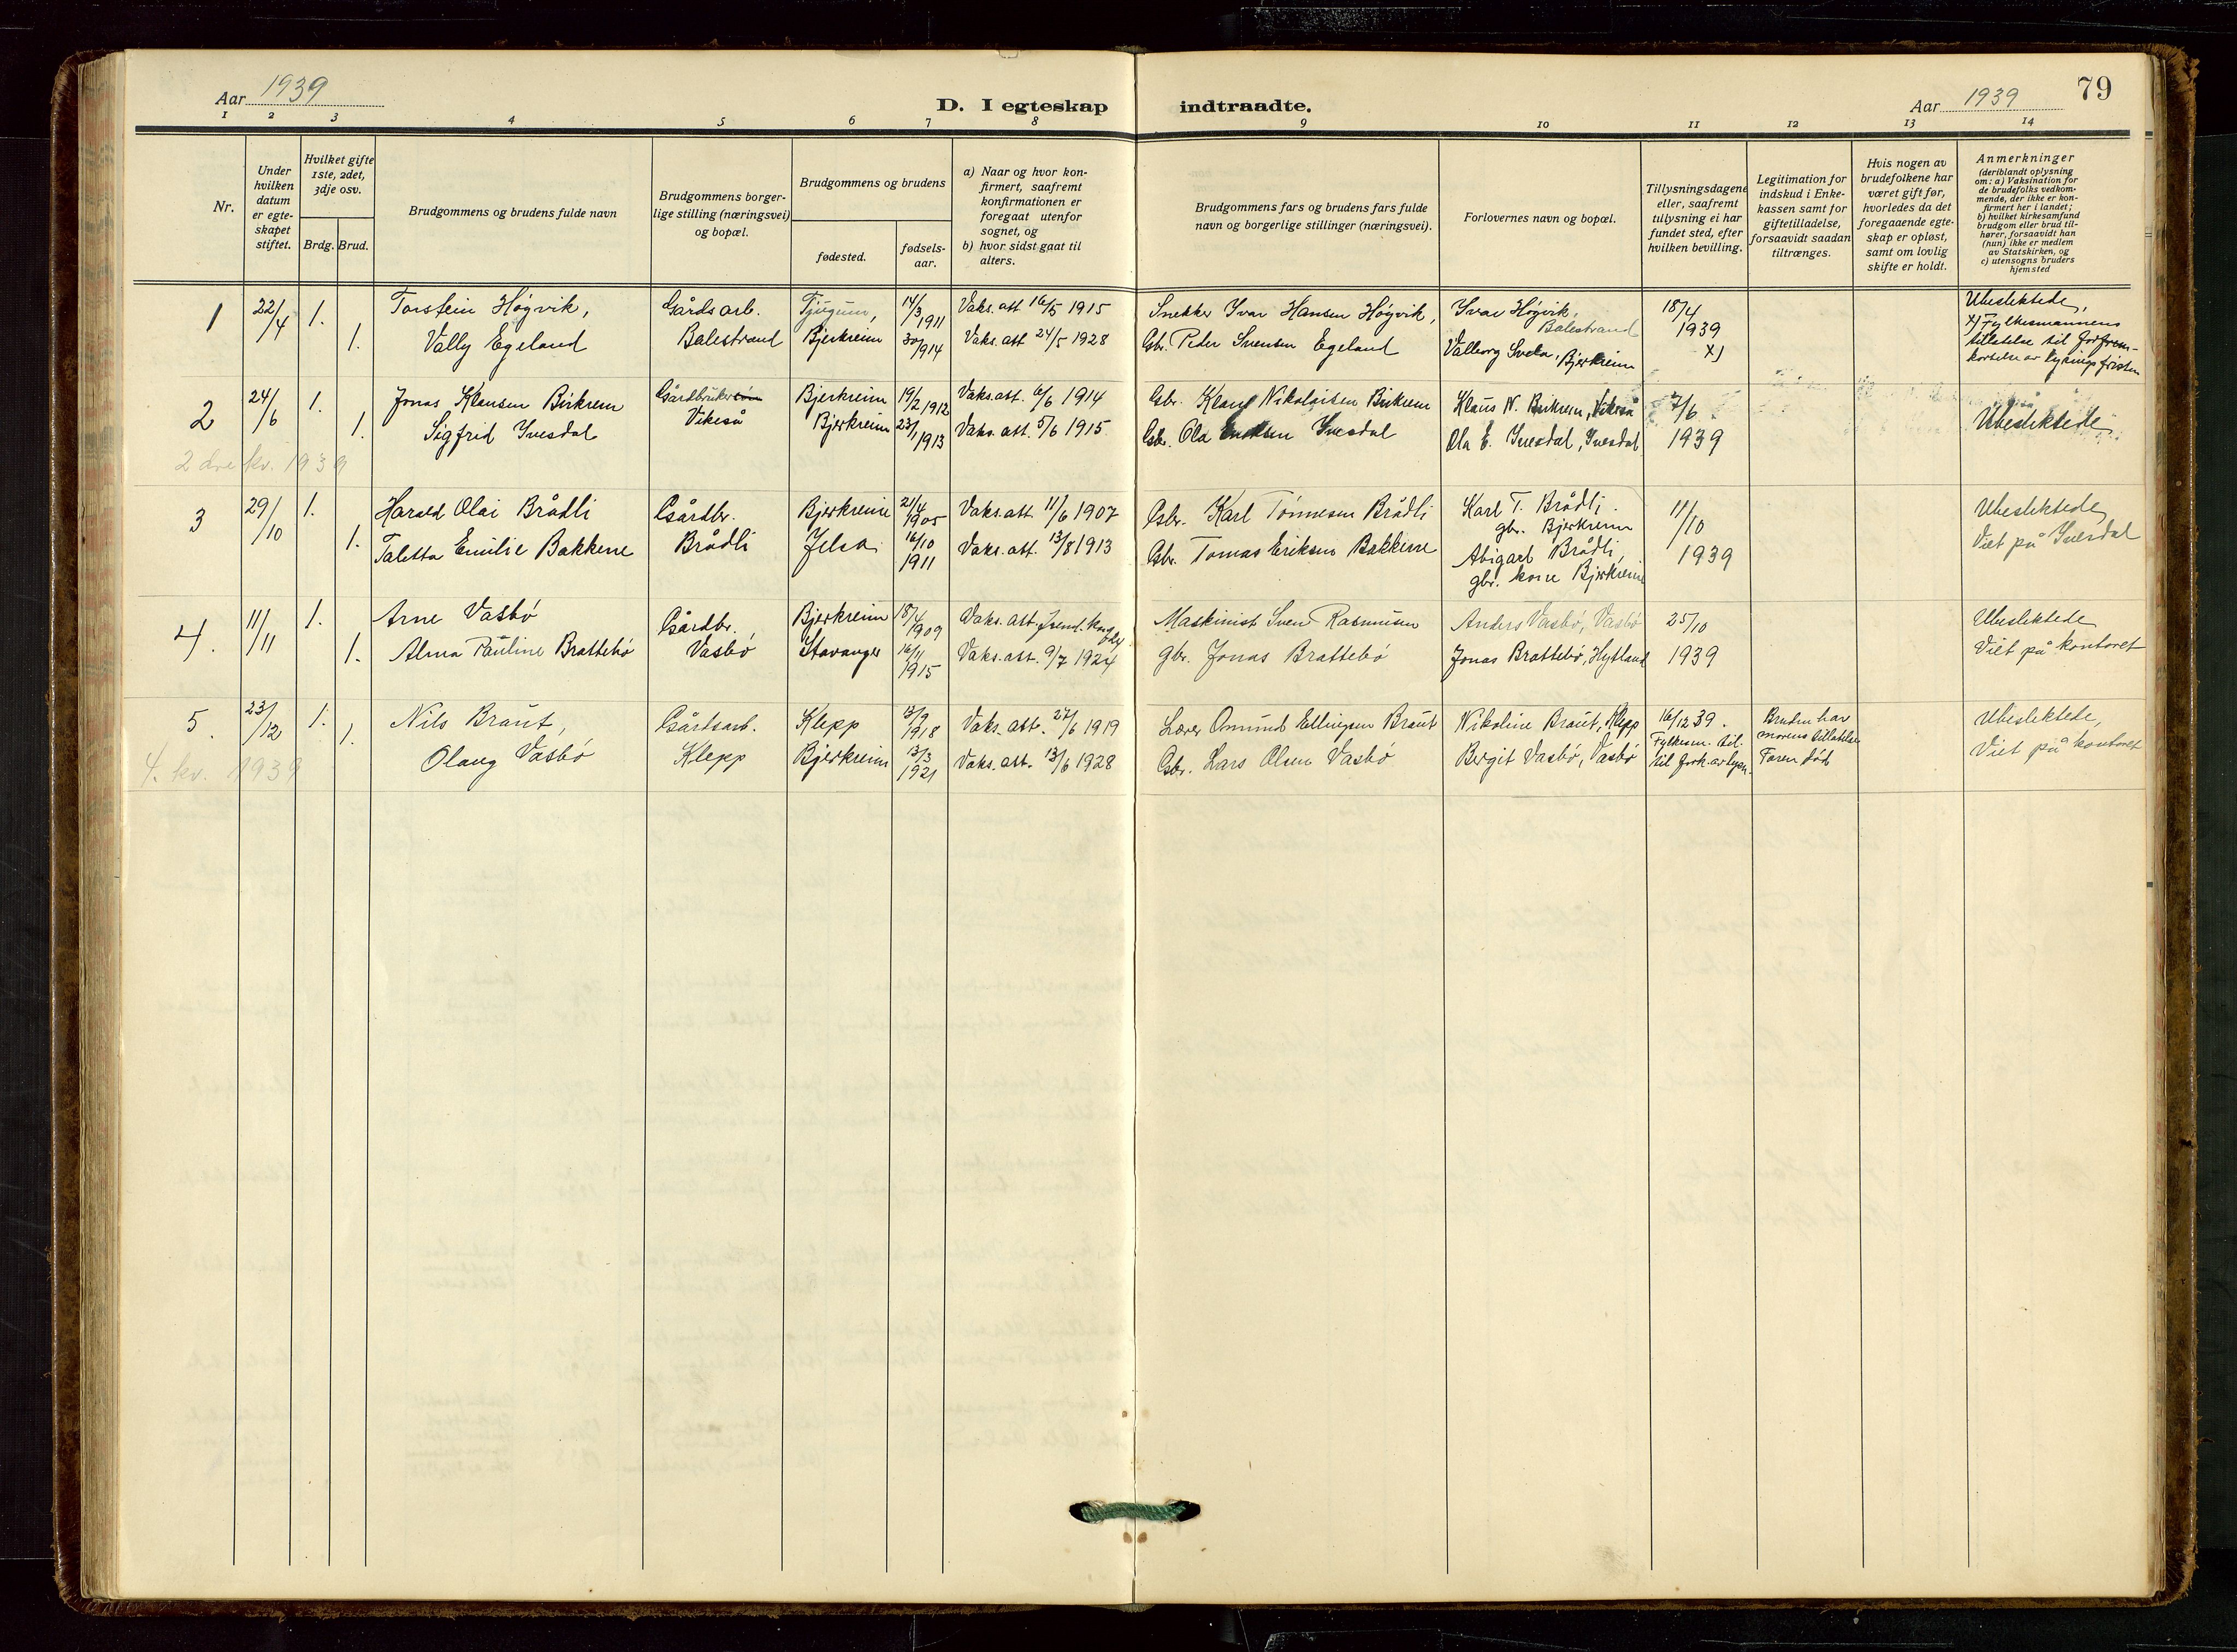 Aar 1939
D. I egteskap indtraadte.
Aar 1939
79
1 2 3 4 5 6 7 8 9 10 11 12 13 14
Nr.
Under hvilken datum er egteskapet stiftet.
Hvilket gifte 1ste, 2det, 3dje osv.
Brdg. Brud.
Brudgommens og brudens fulde navn
Brudgommens borgerlige stilling (næringsvei) og bopæl.
Brudgommens og brudens
fødested.
fødselsaar.
a) Naar og hvor konfirmert, saafremt konfirmationen er foregaat utenfor sognet, og
b) hvor sidst gaat til alters.
Brudgommens fars og brudens fars fulde navn og borgerlige stillinger (næringsvei).
Forlovernes navn og bopæl.
Tillysningsdagene eller, saafremt tillysning ei har fundet sted, efter hvilken bevilling.
Legitimation for indskud i Enkekassen samt for giftetilladelse, forsaavidt saadan tiltrænges.
Hvis nogen av brudefolkene har været gift før, hvorledes da det foregaaende egteskap er opløst, samt om lovlig skifte er holdt.
Anmerkninger (deriblandt oplysning om: a) Vaksination for de brudefolks vedkommende, der ikke er konfirmert her i landet; b) hvilket kirkesamfund brudgom eller brud tilhører, forsaavidt han (hun) ikke er medlem av Statskirken, og c) utensogns bruders hjemsted
1 22/4 1. Torstein Høgvik, Gårdsarb. Tjugum, 14/3 1911 Vaks. att 16/5 1915 Snekker Ivar Hansen Høgvik, Ivar Høgvik, Balestrand 18/4 1939 x) Ubeslektede,
1. Vally Egeland Balestrand Bjerkreim 30/ 1914 Vaks. att 24/5 1928 Gbr. Peder Svensen Egeland Valborg Svela, Bjerkreim x) Fylkesmannens tillatelse til forkortelse av lysningsfristen
2 24/6 1. Jonas Klausen Birkrem Gårdbruker Bjerkreim 19/2 1912 Vaks. att. 6/6 1914 Gbr. Klaus Nikolaisen Birkrem Klaus N. Birkrem, Vikeså 7/6 Ubeslektede
1. Sigfrid Ivesdal Vikeså Bjerkreim 23/1 1913 Vaks. att. 5/6 1915 Gbr. Ola Eriksen Ivesdal Ola E. Ivesdal, Ivesdal 1939
2dre kv. 1939
3 29/10 1. Harald Olai Brådli Gårdbr. Bjerkreim 21/4 1905 Vaks. att. 11/6 1907 Gbr. Karl Tønnesen Brådli Karl T. Brådli gbr. Bjerkreim 11/10 Ubeslektede
1. Taletta Emilie Bakkene Brådli Jelsa 16/10 1911 Vaks. att. 13/8 1913 Gbr. Tomas Eriksen Bakkene Abigael Brådli, gbr. kone Bjerkreim 1939 Viet på Ivesdal
4. 11/11 1. Arne Vasbø Gårdbr. Bjerkreim 18/4 1909 Vaks. att. Maskinist Sven Rasmusen Anders Vasbø, Vasbø 25/10 Ubeslektede
1. Alma Pauline Brattebø Vasbø Stavanger 16/11 1915 Vaks. att. 9/7 1924 gbr. Jonas Brattebø Jonas Brattebø, Hytland 1939 Viet på kontoret
5. 23/12 1. Nils Braut, Gårdsarb. Klepp 13/9 1918 Vaks. att. 27/6 1919 Lærer Omund Ellingsen Braut Nikoline Braut, Klepp 16/12 39. Bruden har morens tillatelse Ubeslektede,
1. Olaug Vasbø Klepp Bjerkreim 13/3 1921 Vaks. att. 13/6 1928 Gbr. Lars Olsen Vasbø Bergit Vasbø, Vasbø Fylkesm. til. til fork. av lysn. Faren død Viet på kontoret
4. kv. 1939